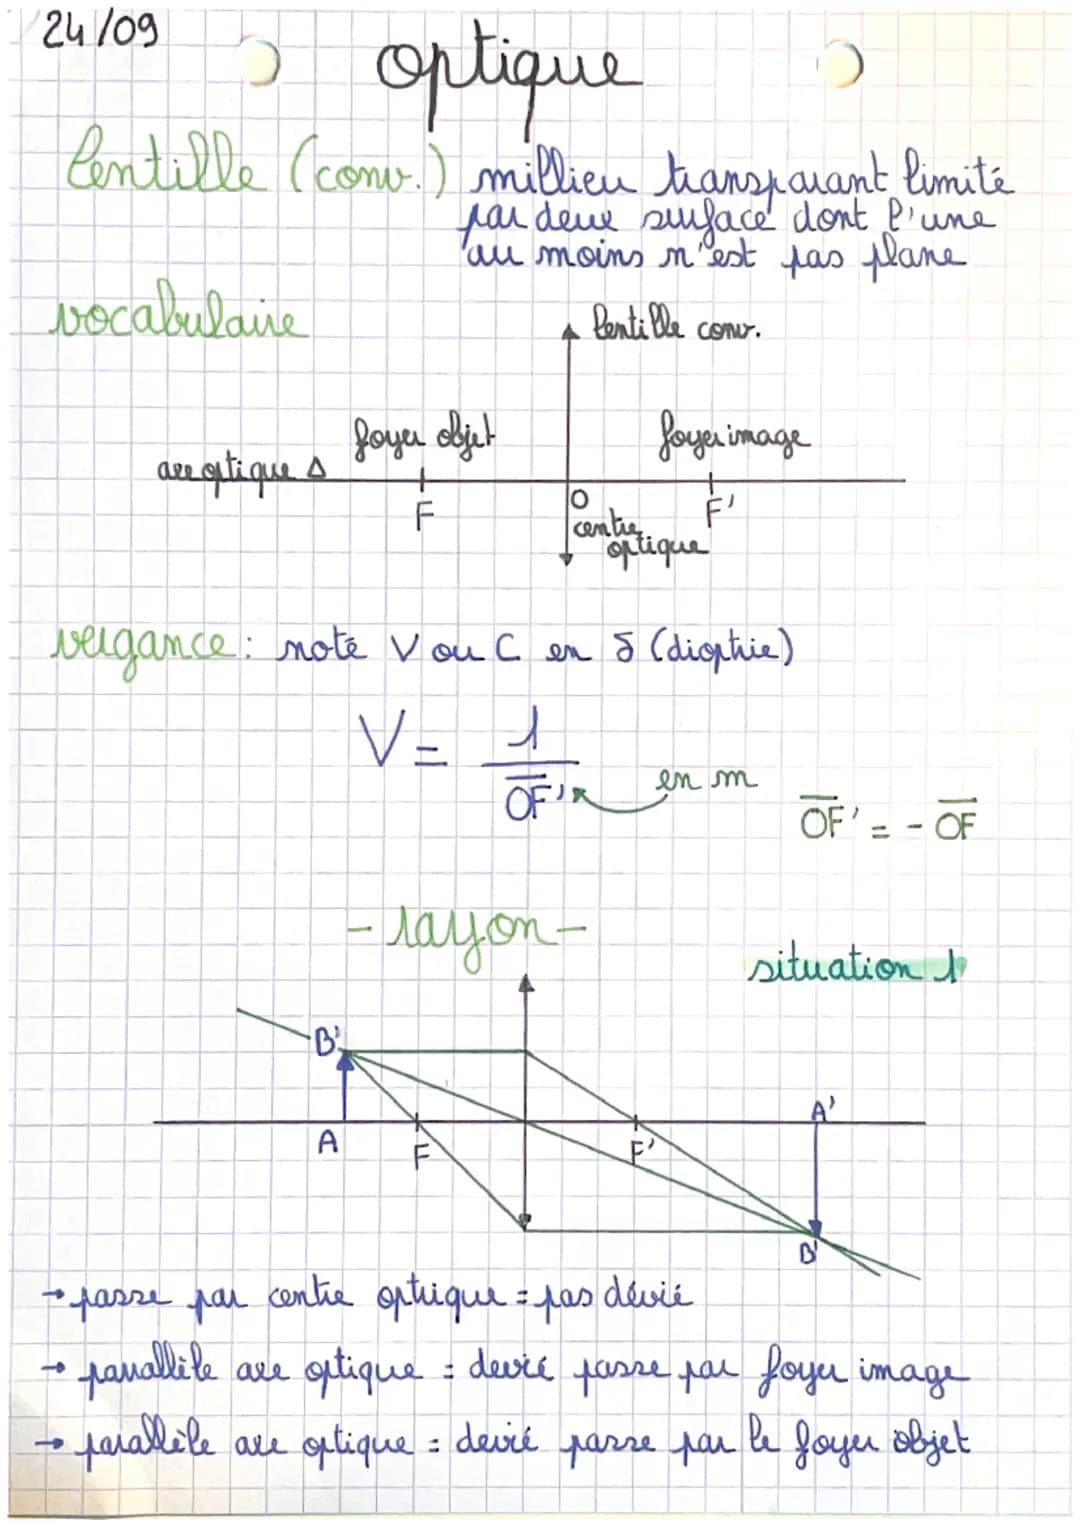 24/09
optique
lentille (conv.) millieu transparant limité
par deux surface dont l'une
au moins n'est pas plane
vocabulaire
lentille conv.
foyer objet foyer image
axe optique Δ
F O F'
centre
optique
vergance : noté V ou C en δ (dioptrie)
V = 1
OF' en m
OF' = - OF
- rayon -
situation 1
B'
A'
A F F'
B'
→ passe par centre optrique = pas dévié
→ parallèle axe optique = devié passe par foyer image
→ parallèle axe optique = devié passe par le foyer objet